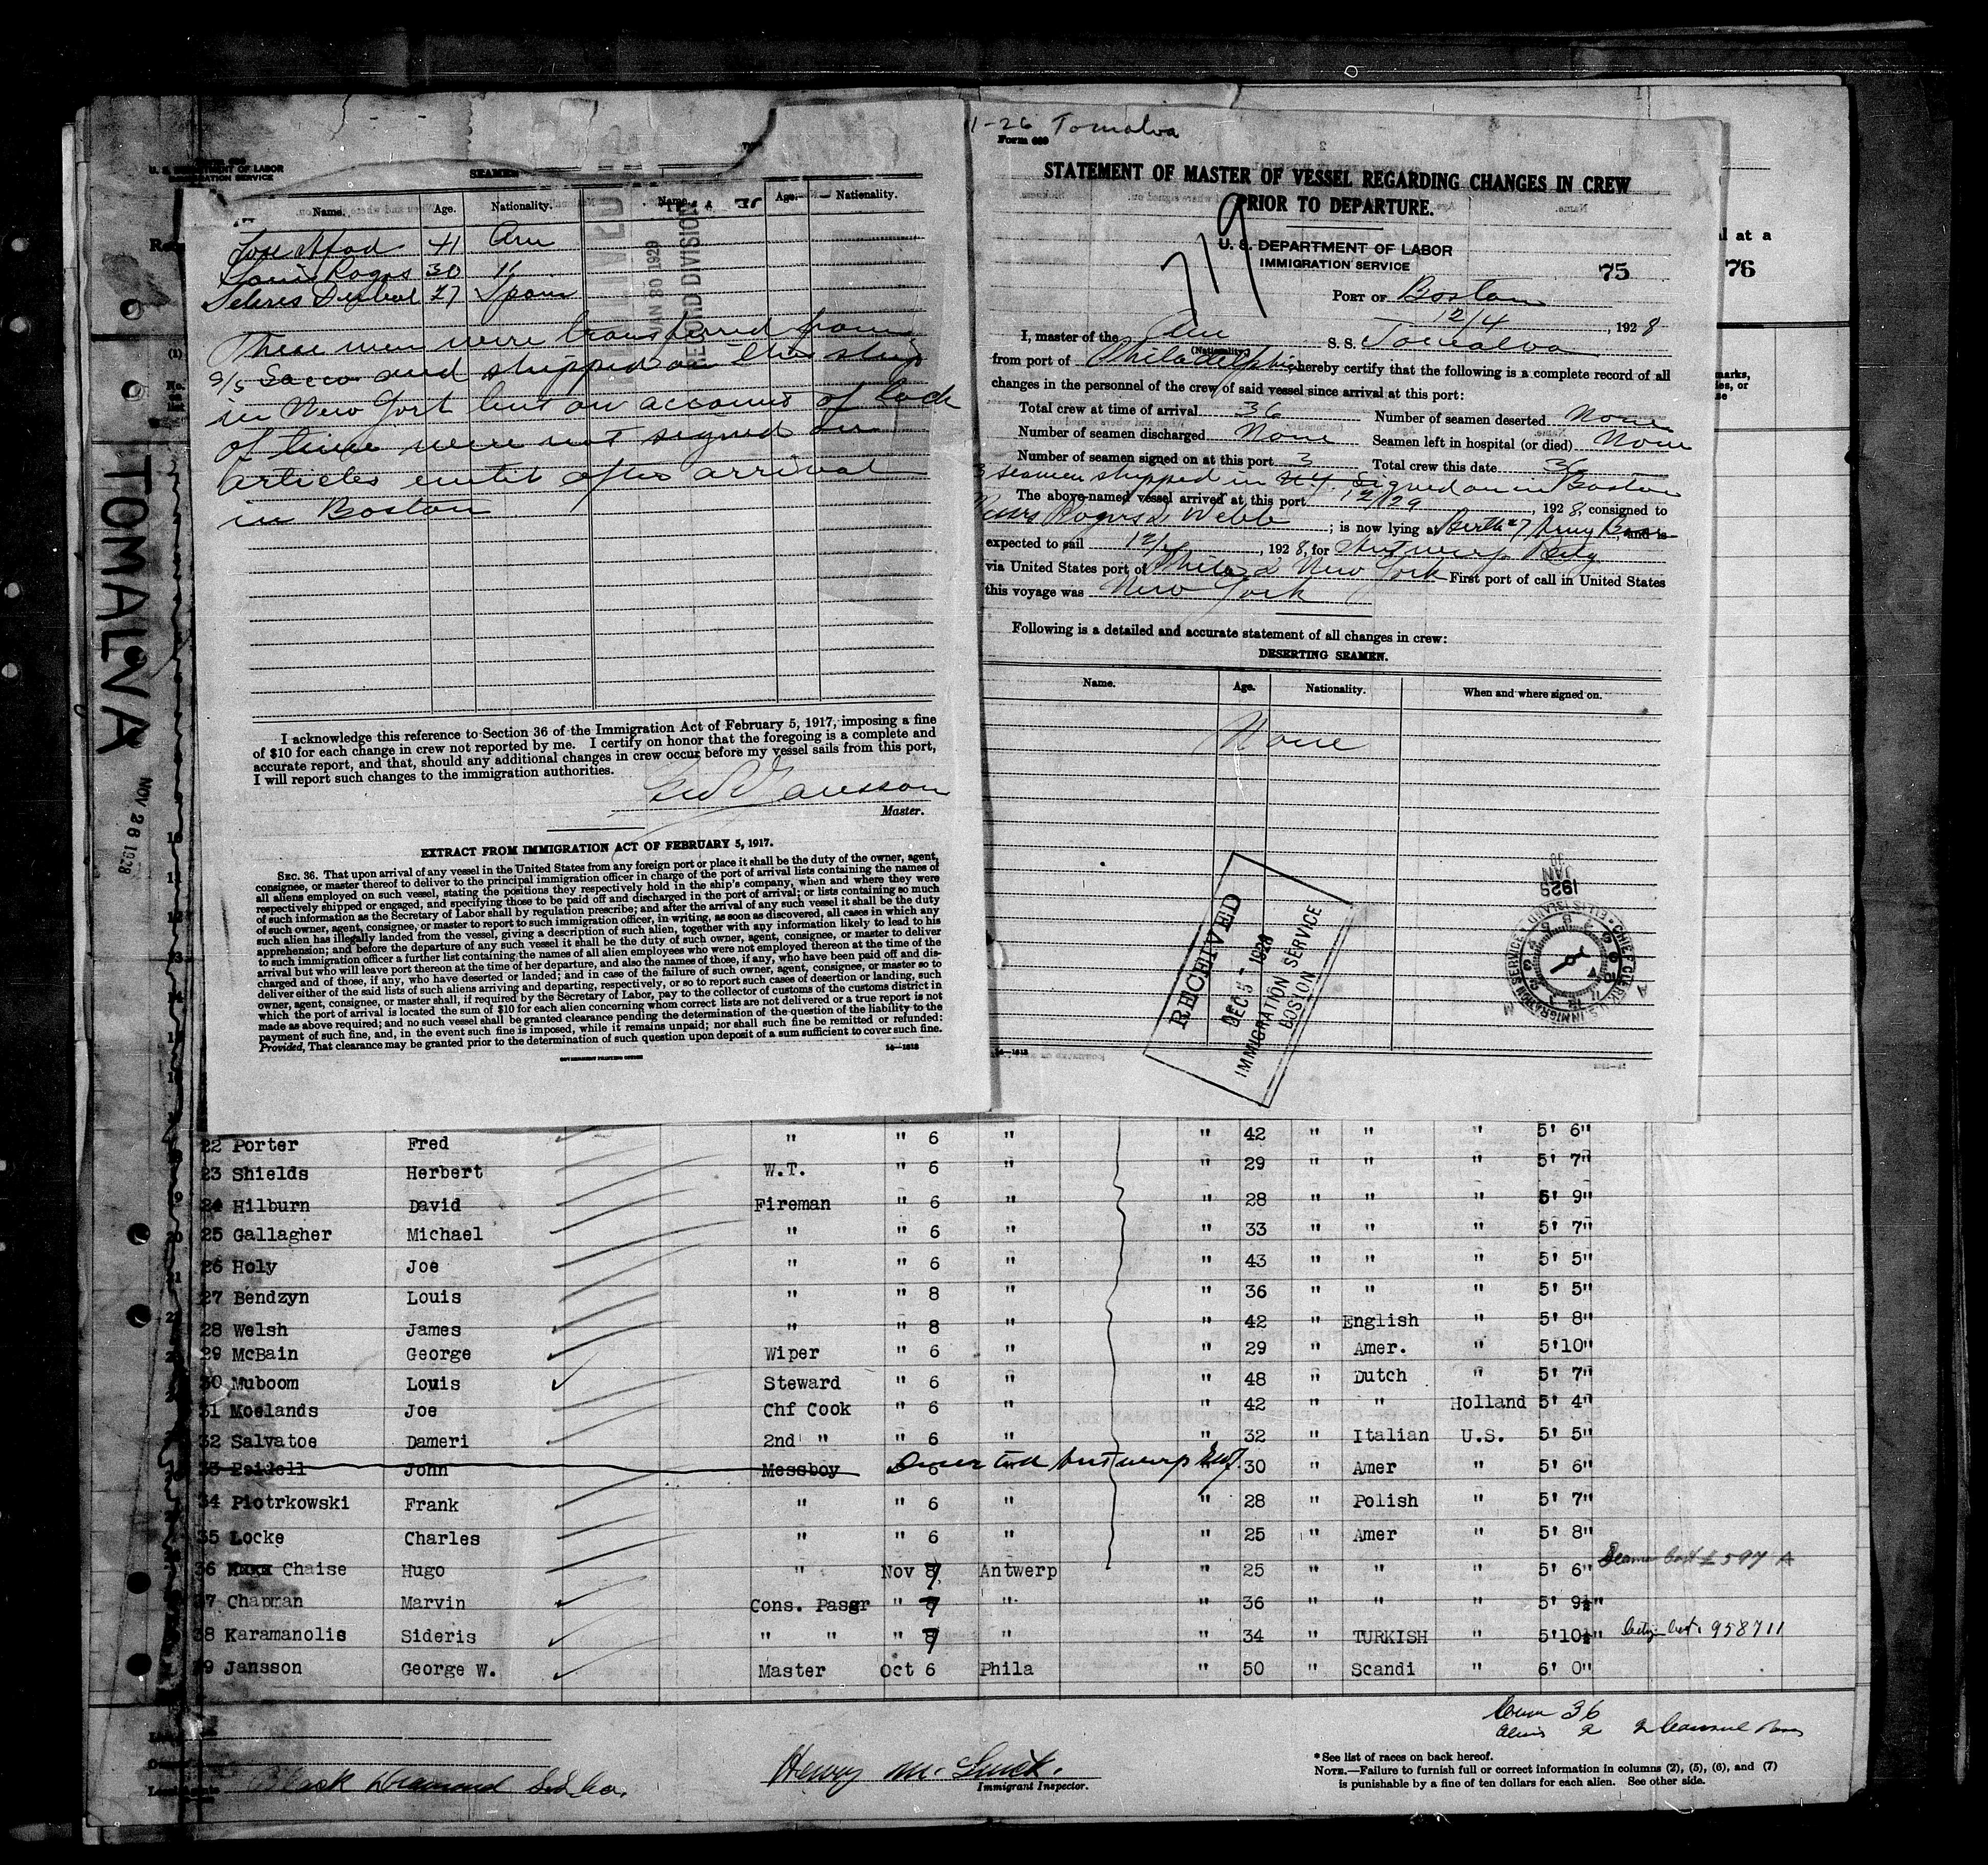 U. S. DEPARTMENT OF LABOR
IMMIGRATION SERVICE
SEAMEN
Name. Age. Nationality. Name. Age. Nationality.
41 Am
30 "
27 Spain
These men were transferred from
S/S Sacco and shipped on this ship
in New York but on account of lack
of time were not signed on
articles until after arrival
in Boston
JAN 30 1929
RECORD DIVISION
I acknowledge this reference to Section 36 of the Immigration Act of February 5, 1917, imposing a fine
of $10 for each change in crew not reported by me. I certify on honor that the foregoing is a complete and
accurate report, and that, should any additional changes in crew occur before my vessel sails from this port,
I will report such changes to the immigration authorities.
Geo W Jansson
Master.
EXTRACT FROM IMMIGRATION ACT OF FEBRUARY 5, 1917.
SEC. 36. That upon arrival of any vessel in the United States from any foreign port or place it shall be the duty of the owner, agent,
consignee, or master thereof to deliver to the principal immigration officer in charge of the port of arrival lists containing the names of
all aliens employed on such vessel, stating the positions they respectively hold in the ship's company, when and where they were
respectively shipped or engaged, and specifying those to be paid off and discharged in the port of arrival; or lists containing so much
of such information as the Secretary of Labor shall by regulation prescribe; and after the arrival of any such vessel it shall be the duty
of such owner, agent, consignee, or master to report to such immigration officer, in writing, as soon as discovered, all cases in which any
such alien has illegally landed from the vessel, giving a description of such alien, together with any information likely to lead to his
apprehension; and before the departure of any such vessel it shall be the duty of such owner, agent, consignee, or master to deliver
to such immigration officer a further list containing the names of all alien employees who were not employed thereon at the time of the
arrival but who will leave port thereon at the time of her departure, and also the names of those, if any, who have been paid off and dis-
charged and of those, if any, who have deserted or landed; and in case of the failure of such owner, agent, consignee, or master so to
deliver either of the said lists of such aliens arriving and departing, respectively, or so to report such cases of desertion or landing, such
owner, agent, consignee, or master shall, if required by the Secretary of Labor, pay to the collector of customs of the customs district in
which the port of arrival is located the sum of $10 for each alien concerning whom correct lists are not delivered or a true report is not
made as above required; and no such vessel shall be granted clearance pending the determination of the question of the liability to the
payment of such fine, and, in the event such fine is imposed, while it remains unpaid; nor shall such fine be remitted or refunded:
Provided, That clearance may be granted prior to the determination of such question upon deposit of a sum sufficient to cover such fine.
GOVERNMENT PRINTING OFFICE 14—1613
TOMALVA
NOV 26 1928
1-26 Tomalva
Form 680
STATEMENT OF MASTER OF VESSEL REGARDING CHANGES IN CREW
PRIOR TO DEPARTURE.
719
U. S. DEPARTMENT OF LABOR
IMMIGRATION SERVICE
75
76
PORT OF Boston
12/4, 1928
I, master of the Am S. S. Tomalva
(Nationality.)
from port of Philadelphia, hereby certify that the following is a complete record of all
changes in the personnel of the crew of said vessel since arrival at this port:
Total crew at time of arrival 36 Number of seamen deserted None
Number of seamen discharged None Seamen left in hospital (or died) None
Number of seamen signed on at this port 3 Total crew this date 36
3 seamen shipped in N.Y. Signed on in Boston
The above-named vessel arrived at this port, 1928, consigned to
Messrs Rogers & Webb; is now lying at Berth #7 Army Base, and is
expected to sail, 1928, for Antwerp Belg
via United States port of Phila & New York First port of call in United States
this voyage was New York
Following is a detailed and accurate statement of all changes in crew:
DESERTING SEAMEN.
Name. Age. Nationality. When and where signed on.
None
RECEIVED
DEC 5 1928
IMMIGRATION SERVICE
BOSTON
JAN 1929
CHIEF CLERK U.S. IMMIGRATION SERVICE
14—1613
22 Porter Fred " " 6 " " 42 " " " 5' 6"
23 Shields Herbert W.T. " 6 " " 29 " " " 5' 7"
24 Hilburn David Fireman " 6 " " 28 " " " 5' 9"
25 Gallagher Michael " " 6 " " 33 " " " 5' 7"
26 Holy Joe " " 6 " " 43 " " " 5' 5"
27 Bendzyn Louis " " 8 " " 36 " " " 5' 5"
28 Welsh James " " 8 " " 42 " English " 5' 8"
29 McBain George Wiper " 6 " " 29 " Amer. " 5'10"
30 Muboom Louis Steward " 6 " " 48 " Dutch " 5' 7"
31 Moelands Joe Chf Cook " 6 " " 42 " " Holland 5' 4"
32 Salvatoe Dameri 2nd " " 6 " " 32 " Italian U.S. 5' 5"
33 John Messboy " 6 " Deserted Antwerp " 30 " Amer " 5' 6"
34 Piotrkowski Frank " " 6 " " 28 " Polish " 5' 7"
35 Locke Charles " " 6 " " 25 " Amer " 5' 8"
36 Chaise Hugo " Nov 7 Antwerp " 25 " " " 5' 6"
37 Chapman Marvin Cons. Pasgr " 7 " " 36 " " " 5' 9½"
38 Karamanolis Sideris " " " 7 " 34 " TURKISH " 5'10½" 958711
39 Jansson George W. Master Oct 6 Phila " 50 " Scandi " 6' 0"
36
2
Black Diamond S.S. Co.
Henry M.
Immigrant Inspector.
*See list of races on back hereof.
NOTE.—Failure to furnish full or correct information in columns (2), (5), (6), and (7)
is punishable by a fine of ten dollars for each alien. See other side.